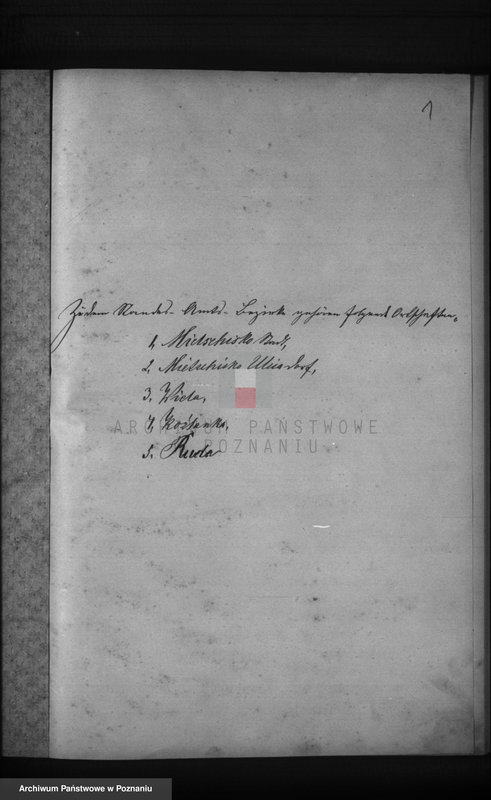 1
Zu dem Standes-Amts-Bezirke gehören folgende Ortschaften.
1, Mietschisko Stadt,
2. Mietschisko
3. Wiela,
4, Kozlanka,
5. Ruda
ARCHIWUM PAŃSTWOWE
W POZNANIU
Archiwum Państwowe w Poznaniu